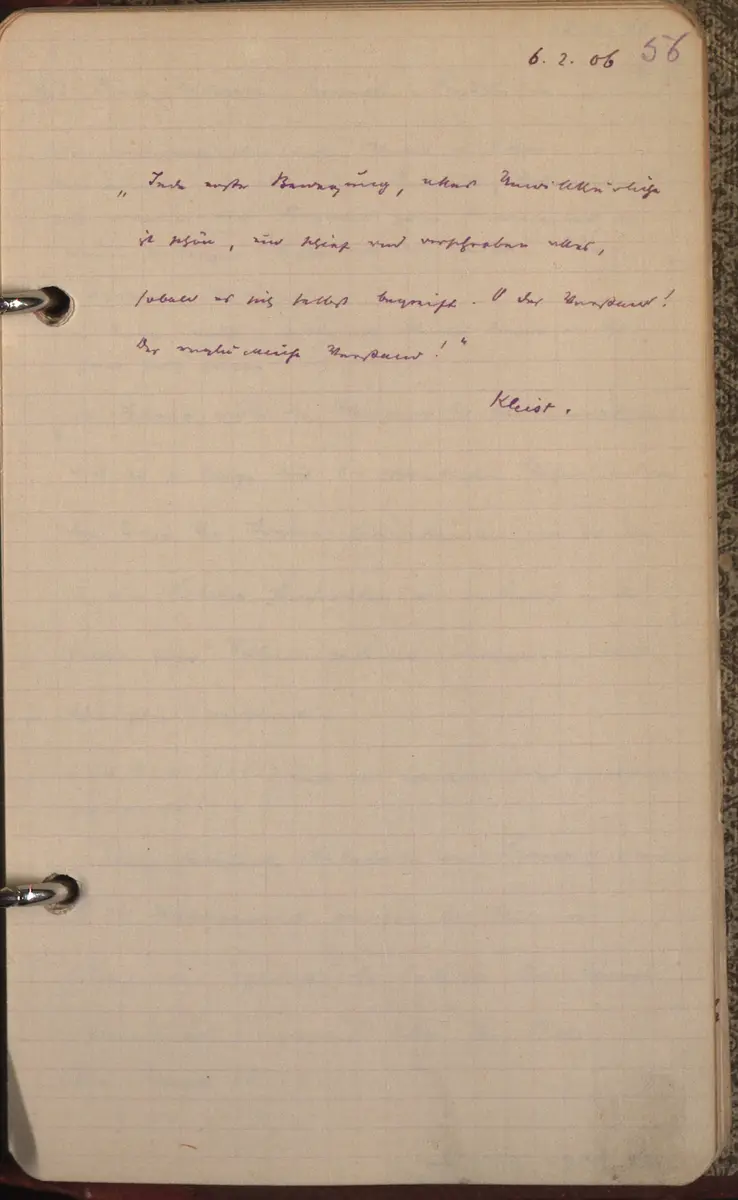 6. 2. 06 56
„Jede erste Bewegung, alles Unwillkürliche
ist schön, und schief und verschroben alles,
sobald es sich selbst begreift. O der Verstand!
Der unglückliche Verstand!“
Kleist.